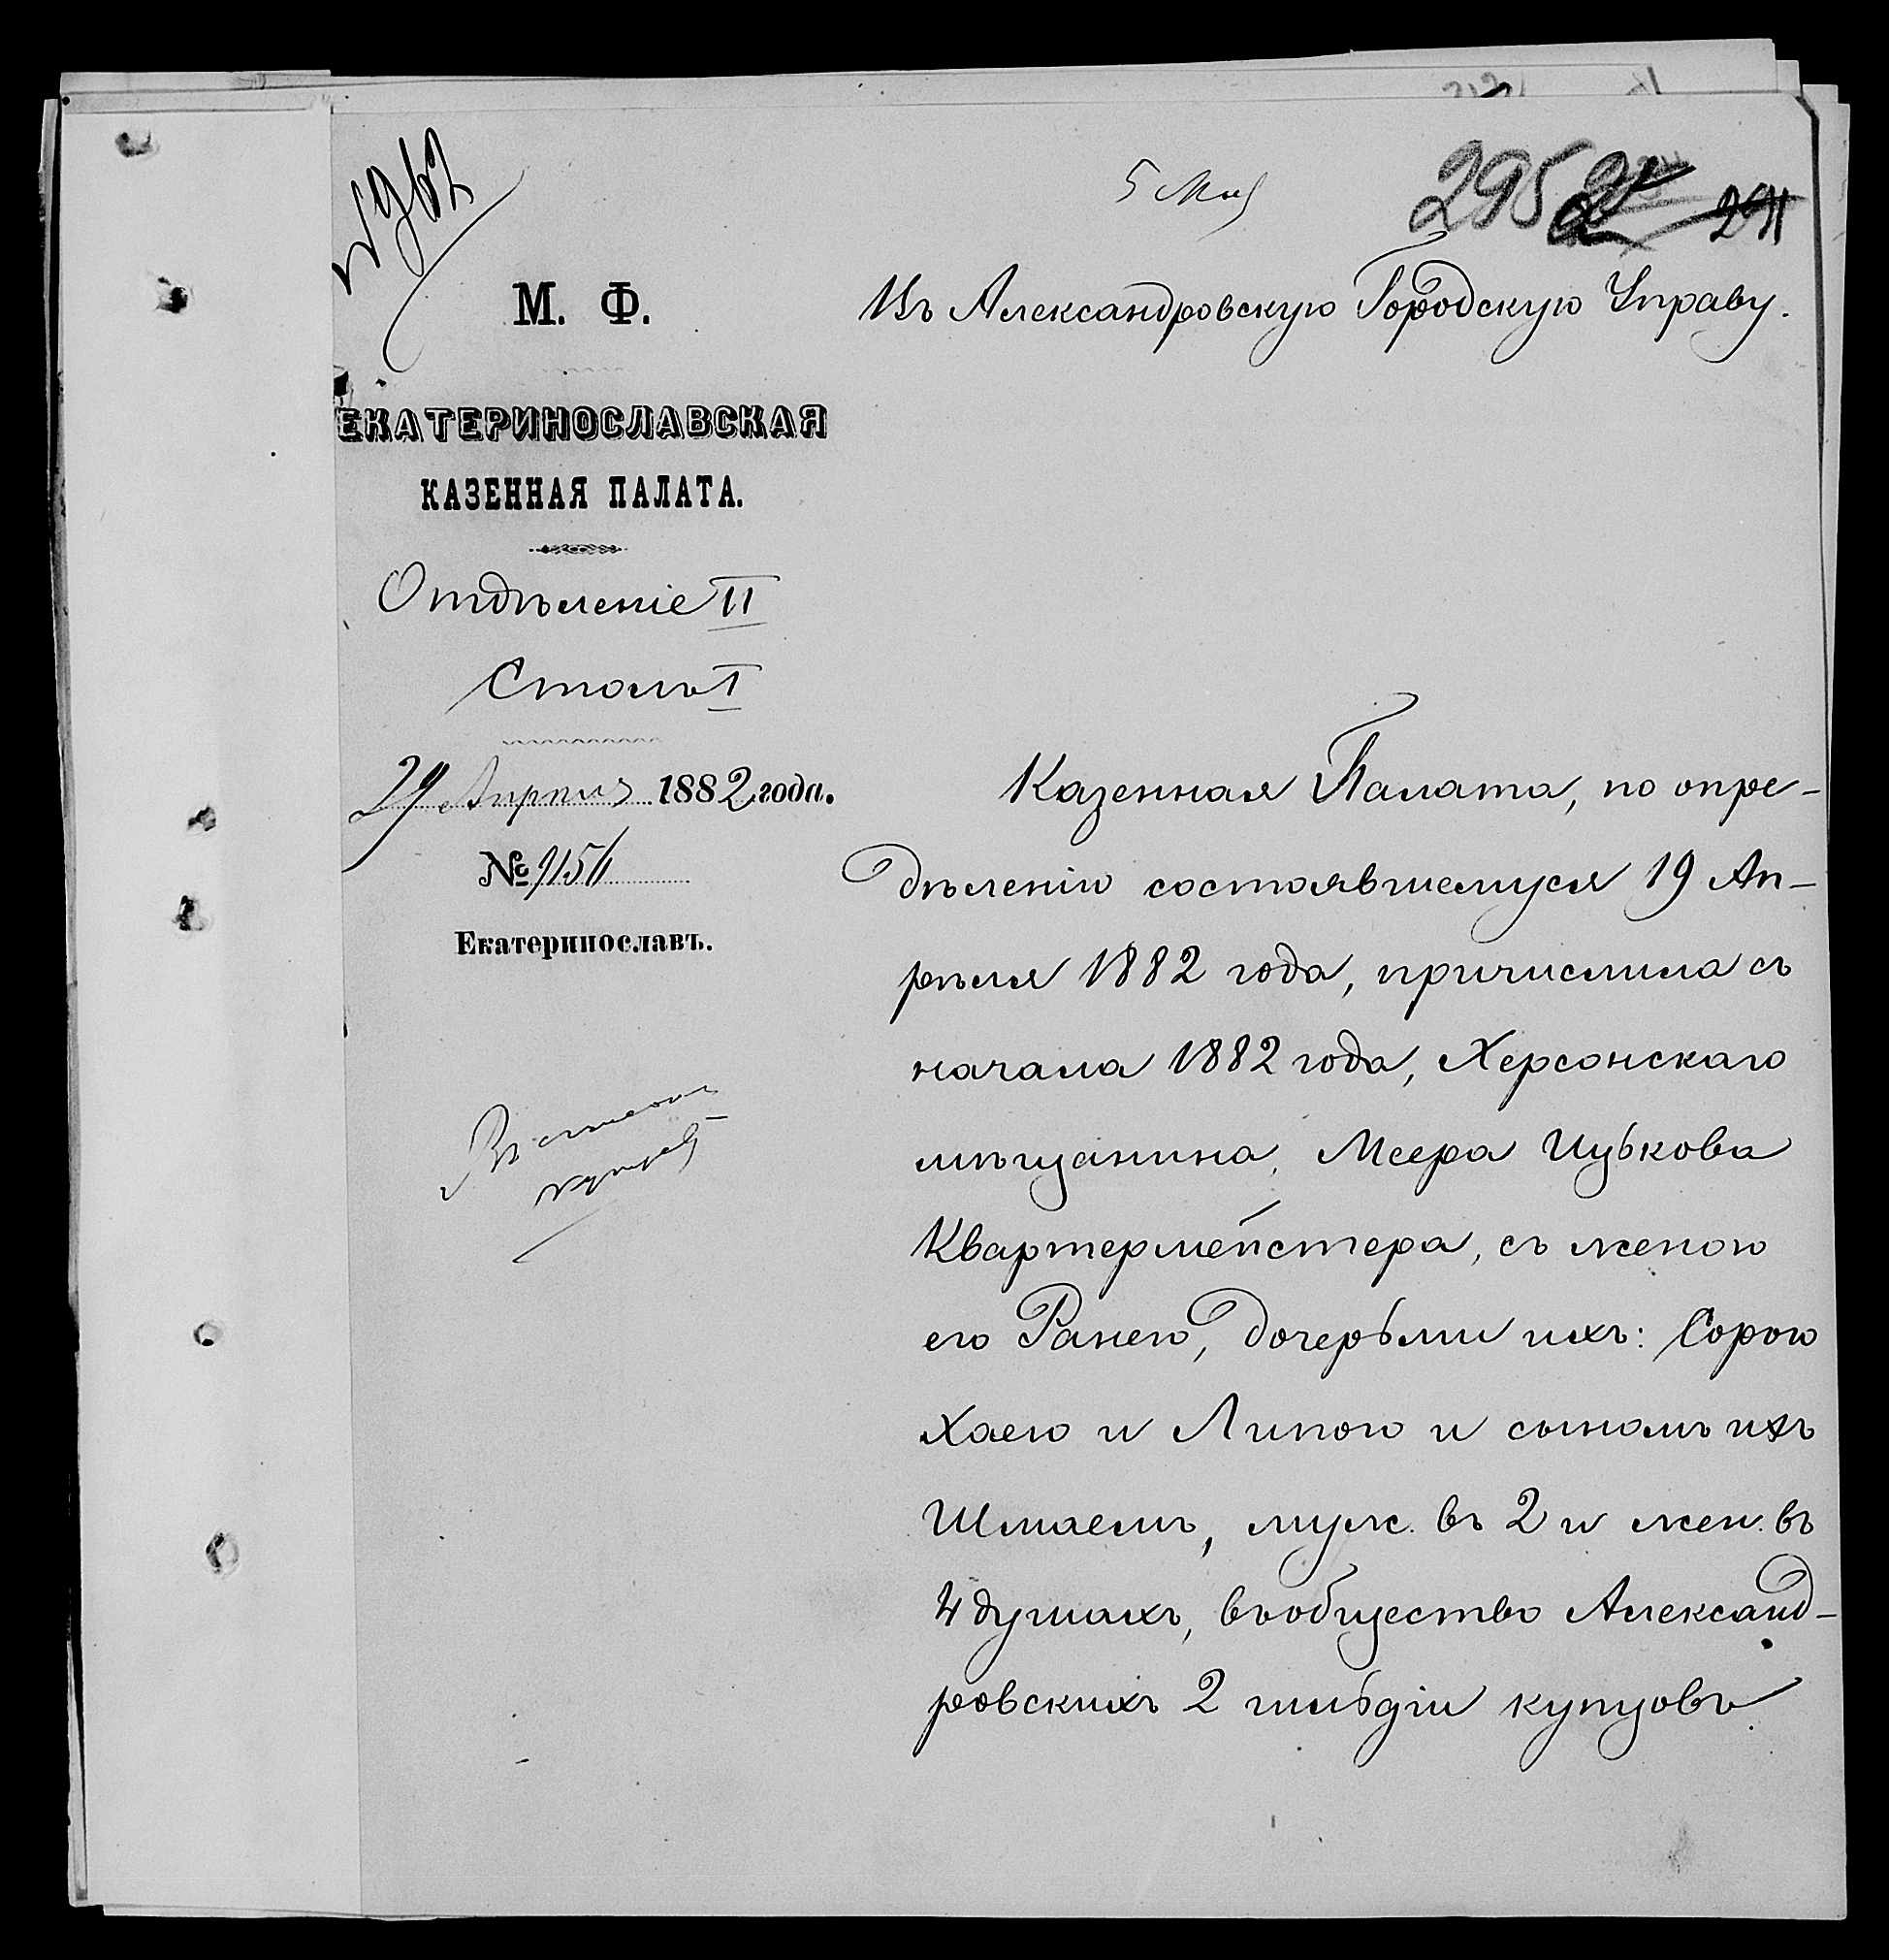 № 962
5 Мая
295
291
М. Ф.
ЕКАТЕРИНОСЛАВСКАЯ
КАЗЕННАЯ ПАЛАТА.
Отдѣленіе II
Столъ I
29 Апрѣля 1882 года.
№
Екатеринославъ.
Въ
Въ Александровскую Городскую Управу.
Казенная Палата, по опре-
дѣленію состоявшемуся 19 Ап-
рѣля 1882 года, причислила съ
начала 1882 года, Херсонскаго
мѣщанина, Меера Ицькова
Квартермейстера, съ женою
его Ранею, дочерьми ихъ: Сорою
Хаею и Липою и сыномъ ихъ
Шмаемъ, муж. въ 2 и жен. въ
4 душахъ, въ общество Александ-
ровскихъ 2 гильдіи купцовъ